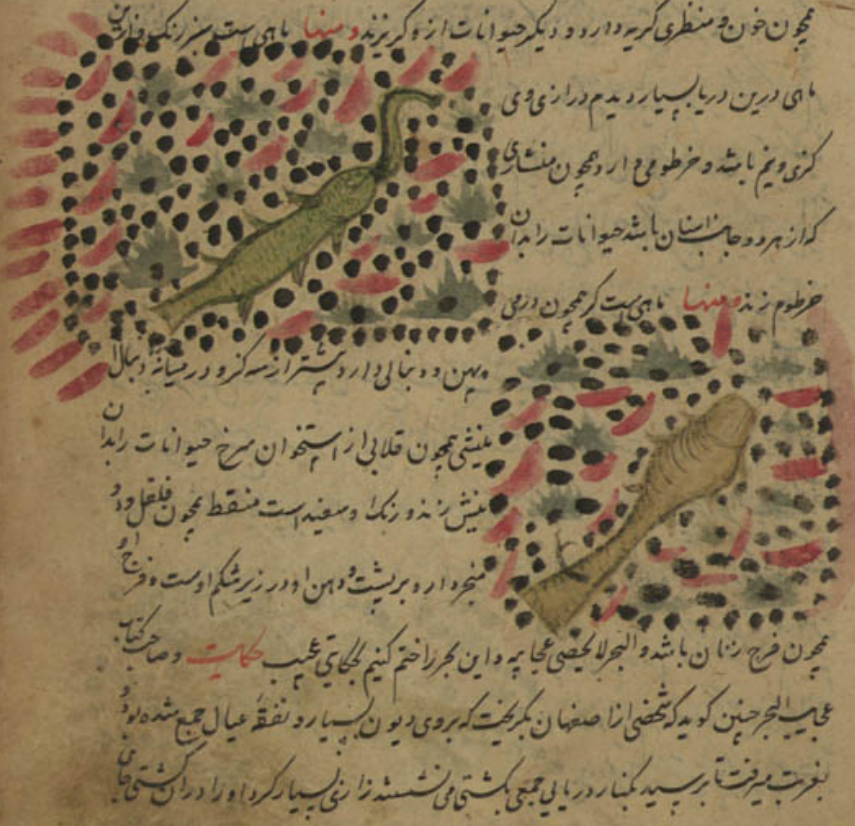 همچون خون و منظری کریه دارد و دیکر حیوانات ازو کریزند ومنها ماهی است سبز رنک
ماهی درین دریا بسیار دیدم درازی وی
کزی و نیم باشد و خرطومی دارد همچون منشاری
که از هر دو جانب اسنان باشد حیوانات را بدان
خرطوم زند ومنها ماهی است کرد همچون
پهن و دنبالی دارد بیشتر از سه کز و در میانه دنبال
نیشی همچون قلابی از استخوان سرخ حیوانات را بدان
نیش زند و رنک او سفید است منقط همچون فلفل و دو
منجره دارد بر پشت و دهن او در زیر شکم اوست و فرج او
همچون فرج زنان باشد والبحر لا یحصی عجایبه و این بحر را ختم کنیم بحکایتی عجیب حکایت و صاحب کتاب
عجایب البحر چنین کوید که شخصی از اصفهان بکریخت که بر وی دیون بسیار و نفقه عیال جمع شده بود و
بغربت میرفت تا برسید بکنار دریایی جمعی بکشتی می نشستند زاری بسیار کرد او را در ان کشتی جای